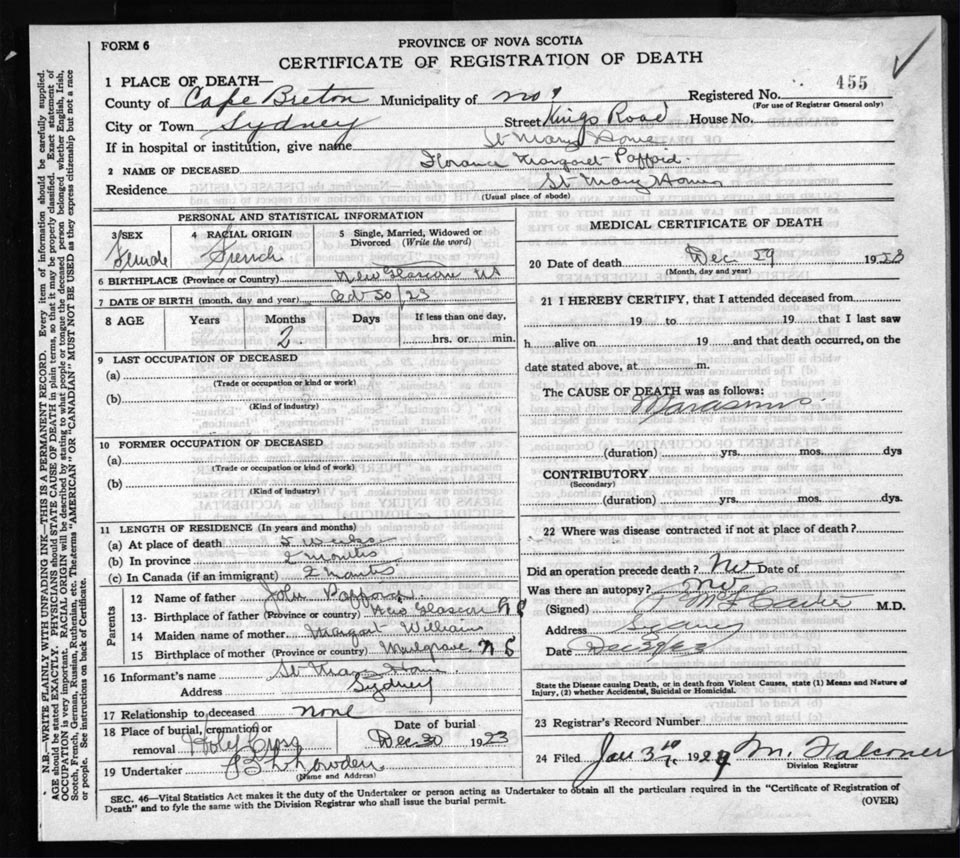 FORM 6
PROVINCE OF NOVA SCOTIA
CERTIFICATE OF REGISTRATION OF DEATH
455
1 PLACE OF DEATH—
County of Cape Breton Municipality of No 9 Registered No.
(For use of Registrar General only)
City or Town Sydney Street Kings Road House No.
If in hospital or institution, give name St Mary Home
2 NAME OF DECEASED Florance Margaret
Residence St Mary Home
(Usual place of abode)
PERSONAL AND STATISTICAL INFORMATION
3 SEX 4 RACIAL ORIGIN 5 Single, Married, Widowed or
Divorced (Write the word)
Female French
6 BIRTHPLACE (Province or Country) New Glascow NS
7 DATE OF BIRTH (month, day and year) Oct 30/23
8 AGE Years Months Days If less than one day,
2 hrs. or min.
9 LAST OCCUPATION OF DECEASED
(a)
(Trade or occupation or kind or work)
(b)
(Kind of industry)
10 FORMER OCCUPATION OF DECEASED
(a)
(Trade or occupation or kind of work)
(b)
(Kind of industry)
11 LENGTH OF RESIDENCE (In years and months)
(a) At place of death 5 weeks
(b) In province 2 months
(c) In Canada (if an immigrant) 2 months
Parents
12 Name of father John
13 Birthplace of father (Province or country) New Glascow NS
14 Maiden name of mother Margaret William
15 Birthplace of mother (Province or country) Mulgrave NS
16 Informant's name St Mary Home
Address Sydney
17 Relationship to deceased none
18 Place of burial, cremation or Date of burial
removal Holy Cross Dec 30 1923
19 Undertaker
(Name and Address)
MEDICAL CERTIFICATE OF DEATH
20 Date of death Dec 29 1923
(Month, day and year)
21 I HEREBY CERTIFY, that I attended deceased from
19 to 19 that I last saw
h alive on 19 and that death occurred, on the
date stated above, at m.
The CAUSE OF DEATH was as follows:
Marasmus
(duration) yrs. mos. dys
CONTRIBUTORY
(Secondary)
(duration) yrs. mos. dys
22 Where was disease contracted if not at place of death?
Did an operation precede death? No Date of
Was there an autopsy? No
(Signed) M.D.
Address Sydney
Date Dec 29/23
State the Disease causing Death, or in death from Violent Causes, state (1) Means and Nature of
Injury, (2) whether Accidental, Suicidal or Homicidal.
23 Registrar's Record Number
24 Filed Jan 3 1924 M. Falconer
Division Registrar
SEC. 46—Vital Statistics Act makes it the duty of the Undertaker or person acting as Undertaker to obtain all the particulars required in the "Certificate of Registration of
Death" and to fyle the same with the Division Registrar who shall issue the burial permit.
(OVER)
N.B.—WRITE PLAINLY WITH UNFADING INK—THIS IS A PERMANENT RECORD. Every item of information should be carefully supplied.
AGE should be stated EXACTLY. PHYSICIANS should STATE CAUSE OF DEATH in plain terms, so that it may be properly classified. Exact statement of
OCCUPATION is very important. RACIAL ORIGIN will be described by stating to what people or tongue the deceased person belonged, whether English, Irish,
Scotch, French, German, Russian, Ruthenian, etc. The terms "AMERICAN" OR "CANADIAN" MUST NOT BE USED as they express citizenship but not a race
or people. See instructions on back of Certificate.